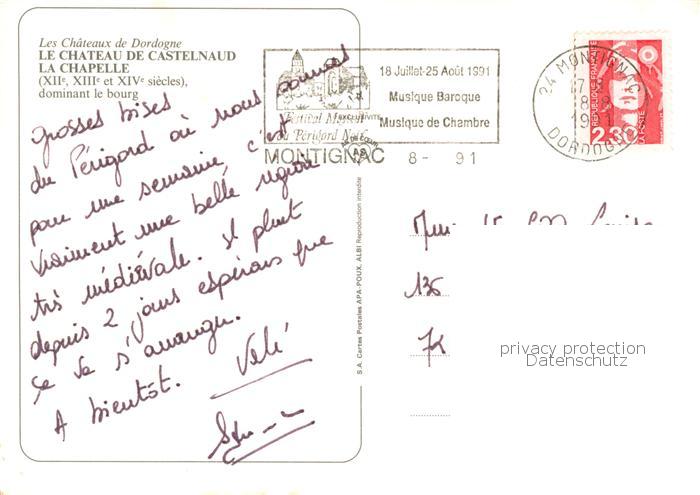 Les Châteaux de Dordogne
LE CHATEAU DE CASTELNAUD
LA CHAPELLE
(XIIe, XIIIe et XIVe siècles),
dominant le bourg
Grosses bises
du Périgord où nous sommes
pour une semaine, c'est
vraiment une belle région
très médiévale. Il pleut
depuis 2 jours espérons que
ça va s'arranger.
A bientôt.
S.A. Cartes Postales APA-POUX, ALBI Reproduction interdite
Festival
du Périgord Noir
MONTIGNAC
18 Juillet-25 Août 1991
Musique Baroque
Musique de Chambre
8- 91
24 MONTIGNAC
DORDOGNE
REPUBLIQUE FRANCAISE
2.30
LA POSTE
136
privacy protection
Datenschutz